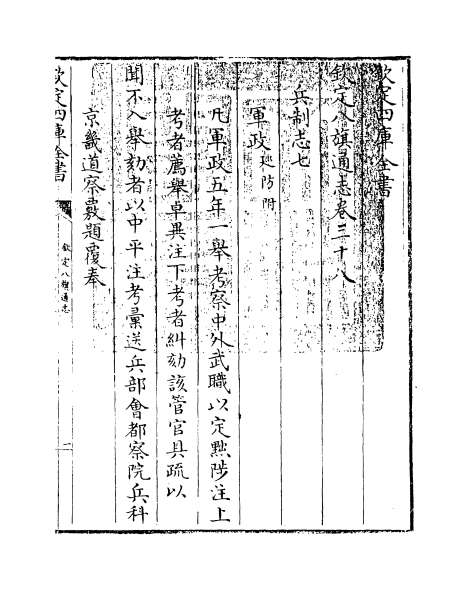 欽定四庫全書
欽定八旗通志卷三十八
兵制志七
軍政巡防附
凡軍政五年一舉考察中外武職以定黜陟注上
考者薦舉卓異注下考者糾劾該管官具疏以
聞不入舉劾者以中平注考彙送兵部會都察院兵科
京畿道察覈題覆奉
欽定四庫全書
欽定八旗通志
一